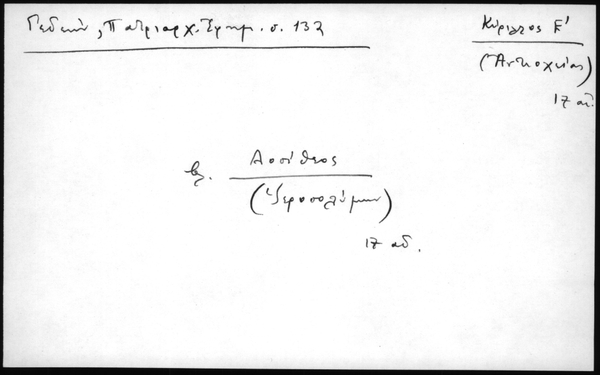 Γεδεών, Πατριαρχ. Ἐφημ. σ. 132
Κύριλλος Ε'
(Ἀντιοχείας)
17 αἰ.
βλ. Δοσίθεος
(Ἱεροσολύμων)
17 αἰ.